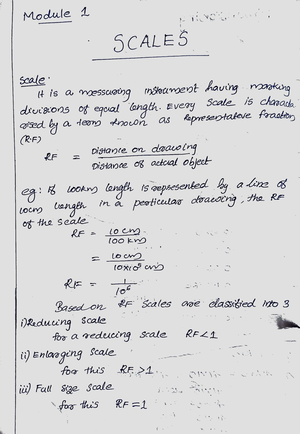 Module 1
SCALES
Scale.
It is a messuring instrument having marking
divisions of equal length. Every Scale is charact
erised by a term known as Representative Fraction
(RF)
RF = Distance on drawing
Distance of actual object
eg: If 100km length is represented by a line of
10cm length in a perticular drawing, the RF
of the scale
RF = 10 cm
100 km
= 10 cm
10×10⁶ cm
RF = 1
10⁶
Based on RF scales are classified into 3
i) Reducing scale
for a reducing scale RF<1
(ii) Enlarging Scale
for this RF >1
iii) Full size scale
for this RF = 1